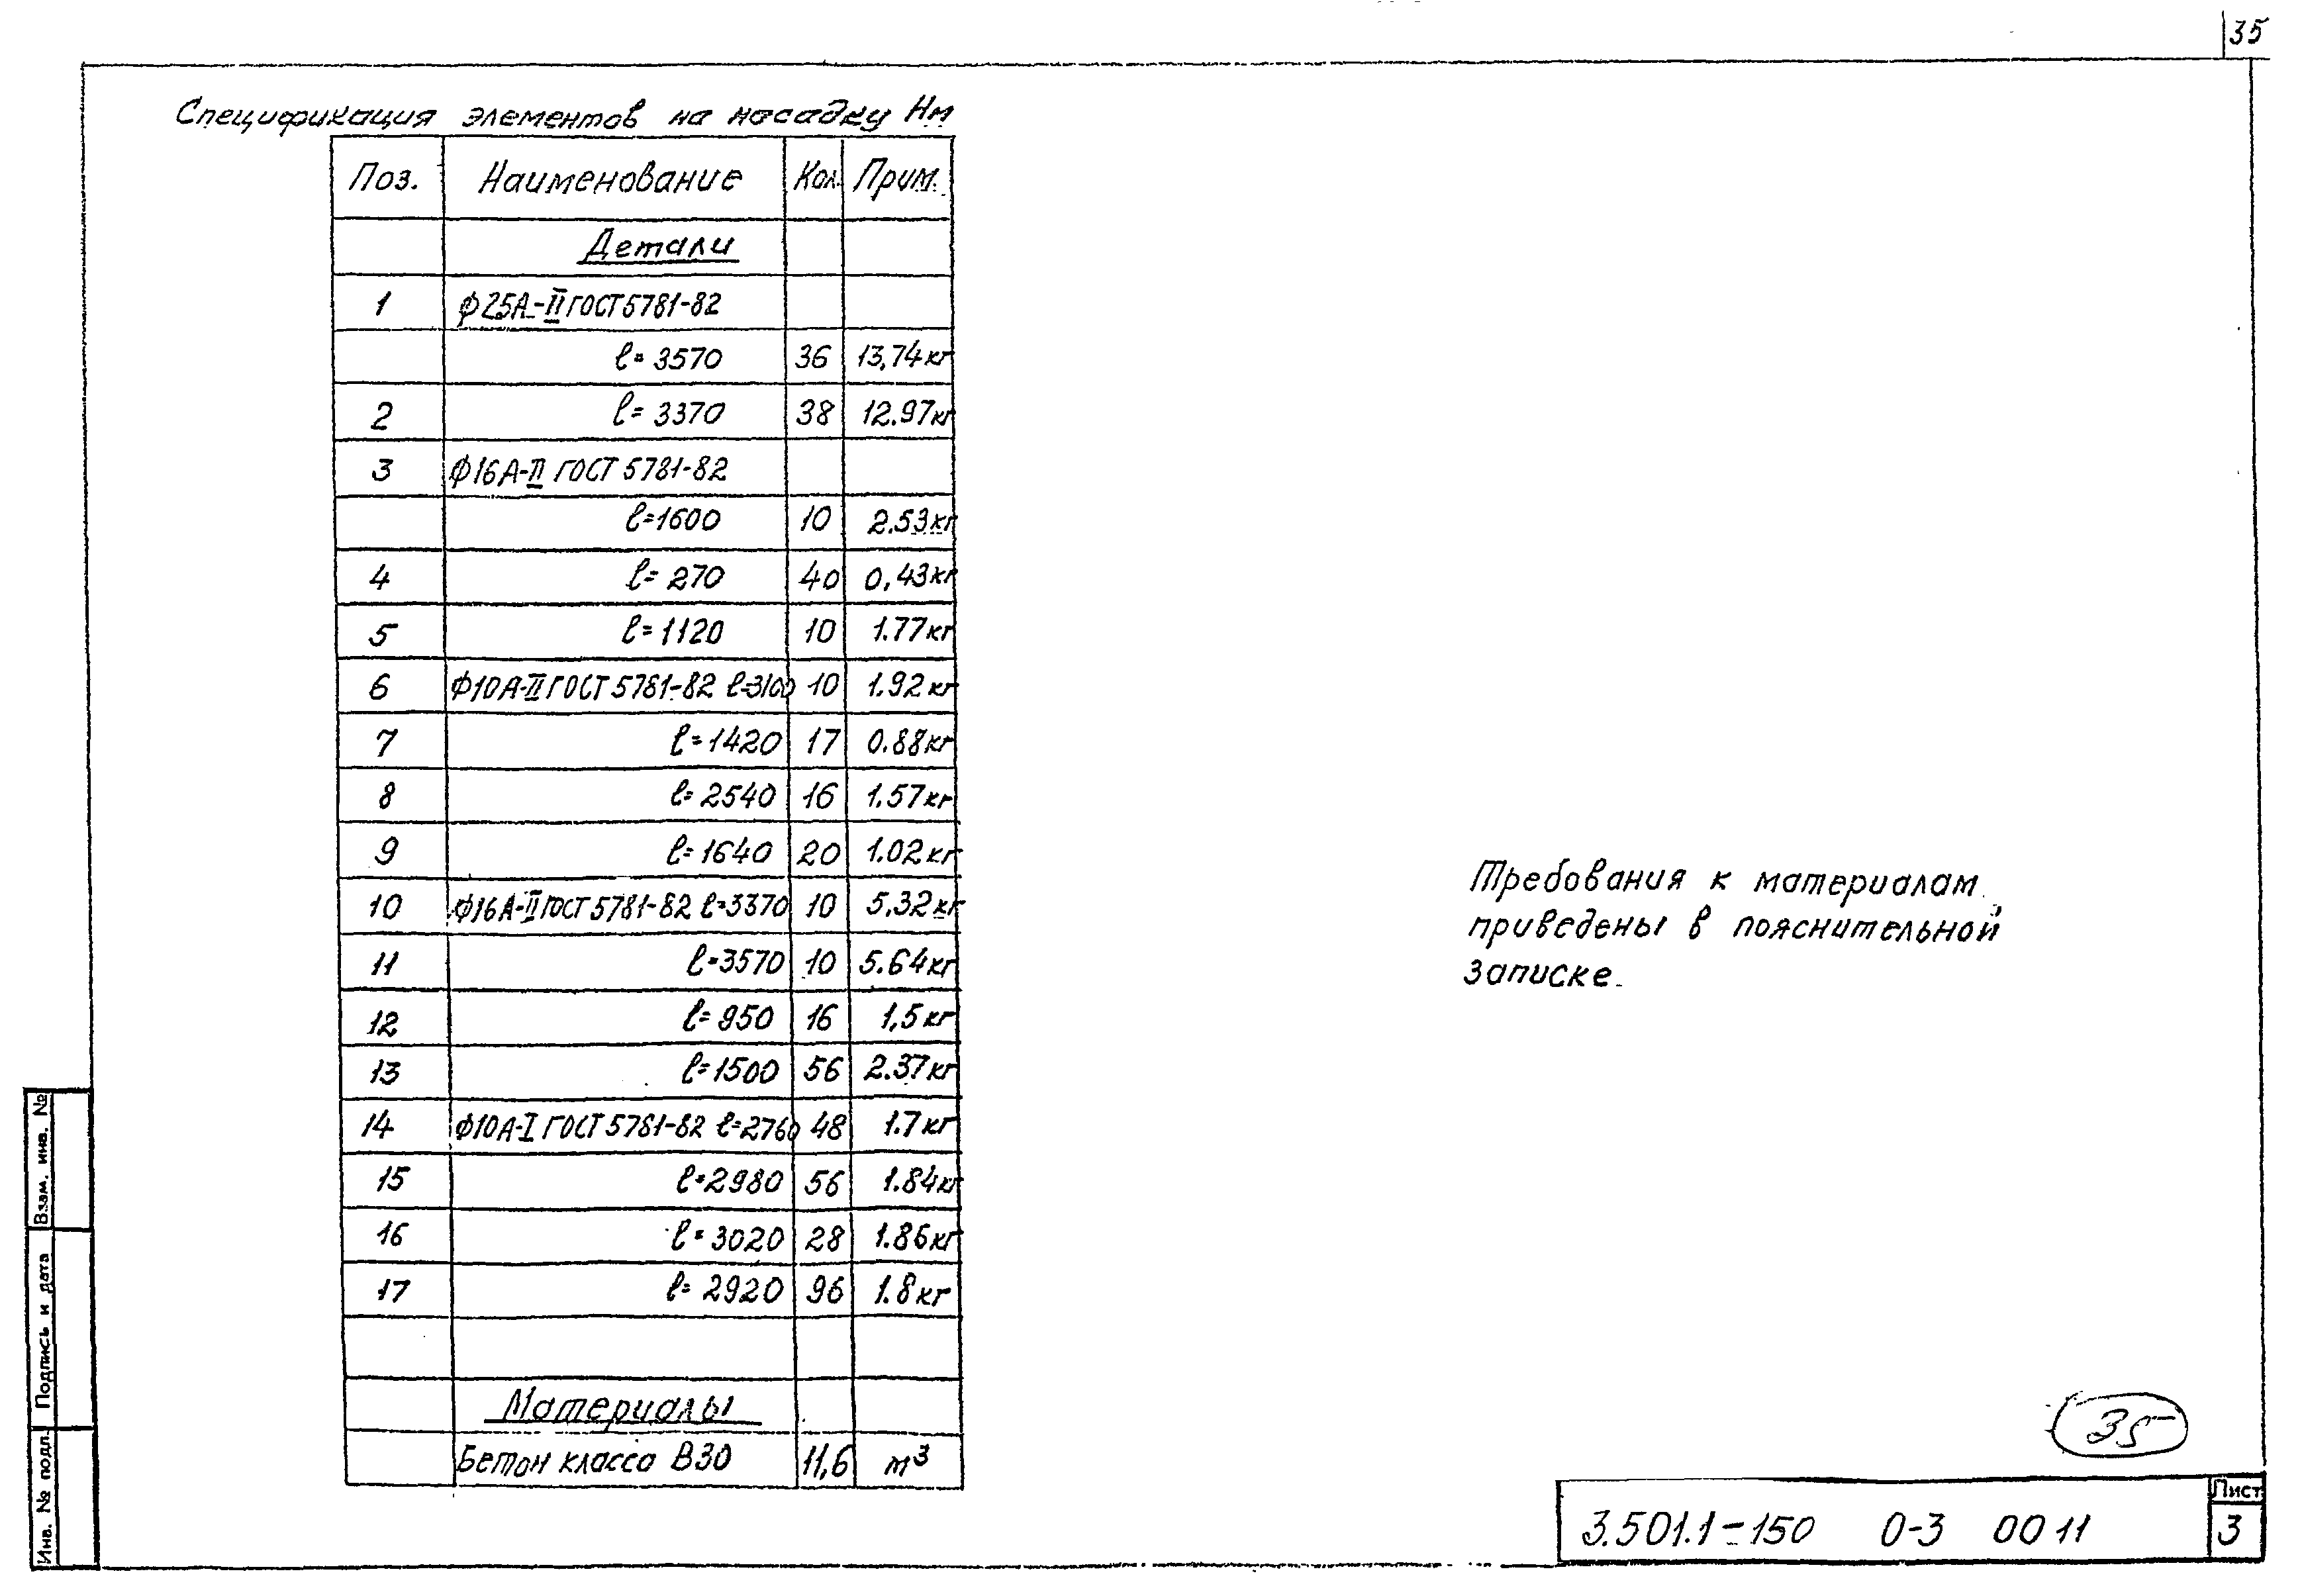 35
Спецификация элементов на насадку Нм
Поз. Наименование Кол. Прим.
Детали
1 ф25А-II ГОСТ 5781-82
l=3570 36 13,74кг
2 l=3370 38 12.97кг
3 Ф16А-II ГОСТ 5781-82
l=1600 10 2.53кг
4 l=270 40 0,43кг
5 l=1120 10 1.77кг
6 Ф10А-II ГОСТ 5781-82 l=3100 10 1.92кг
7 l=1420 17 0.88кг
8 l=2540 16 1.57кг
9 l=1640 20 1.02кг
10 Ф16А-II ГОСТ 5781-82 l=3370 10 5,32кг
11 l=3570 10 5.64кг
12 l=950 16 1,5кг
13 l=1500 56 2.37кг
14 Ф10А-I ГОСТ 5781-82 l=2760 48 1.7кг
15 l=2980 56 1.84кг
16 l=3020 28 1.86кг
17 l=2920 96 1.8кг
Материалы
Бетон класса В30 11,6 м³
Требования к материалам
приведены в пояснительной
записке.
35
3.501.1-150 0-3 00 11
Лист
3
Взам. инв. №
Подпись и дата
Инв. № подл.